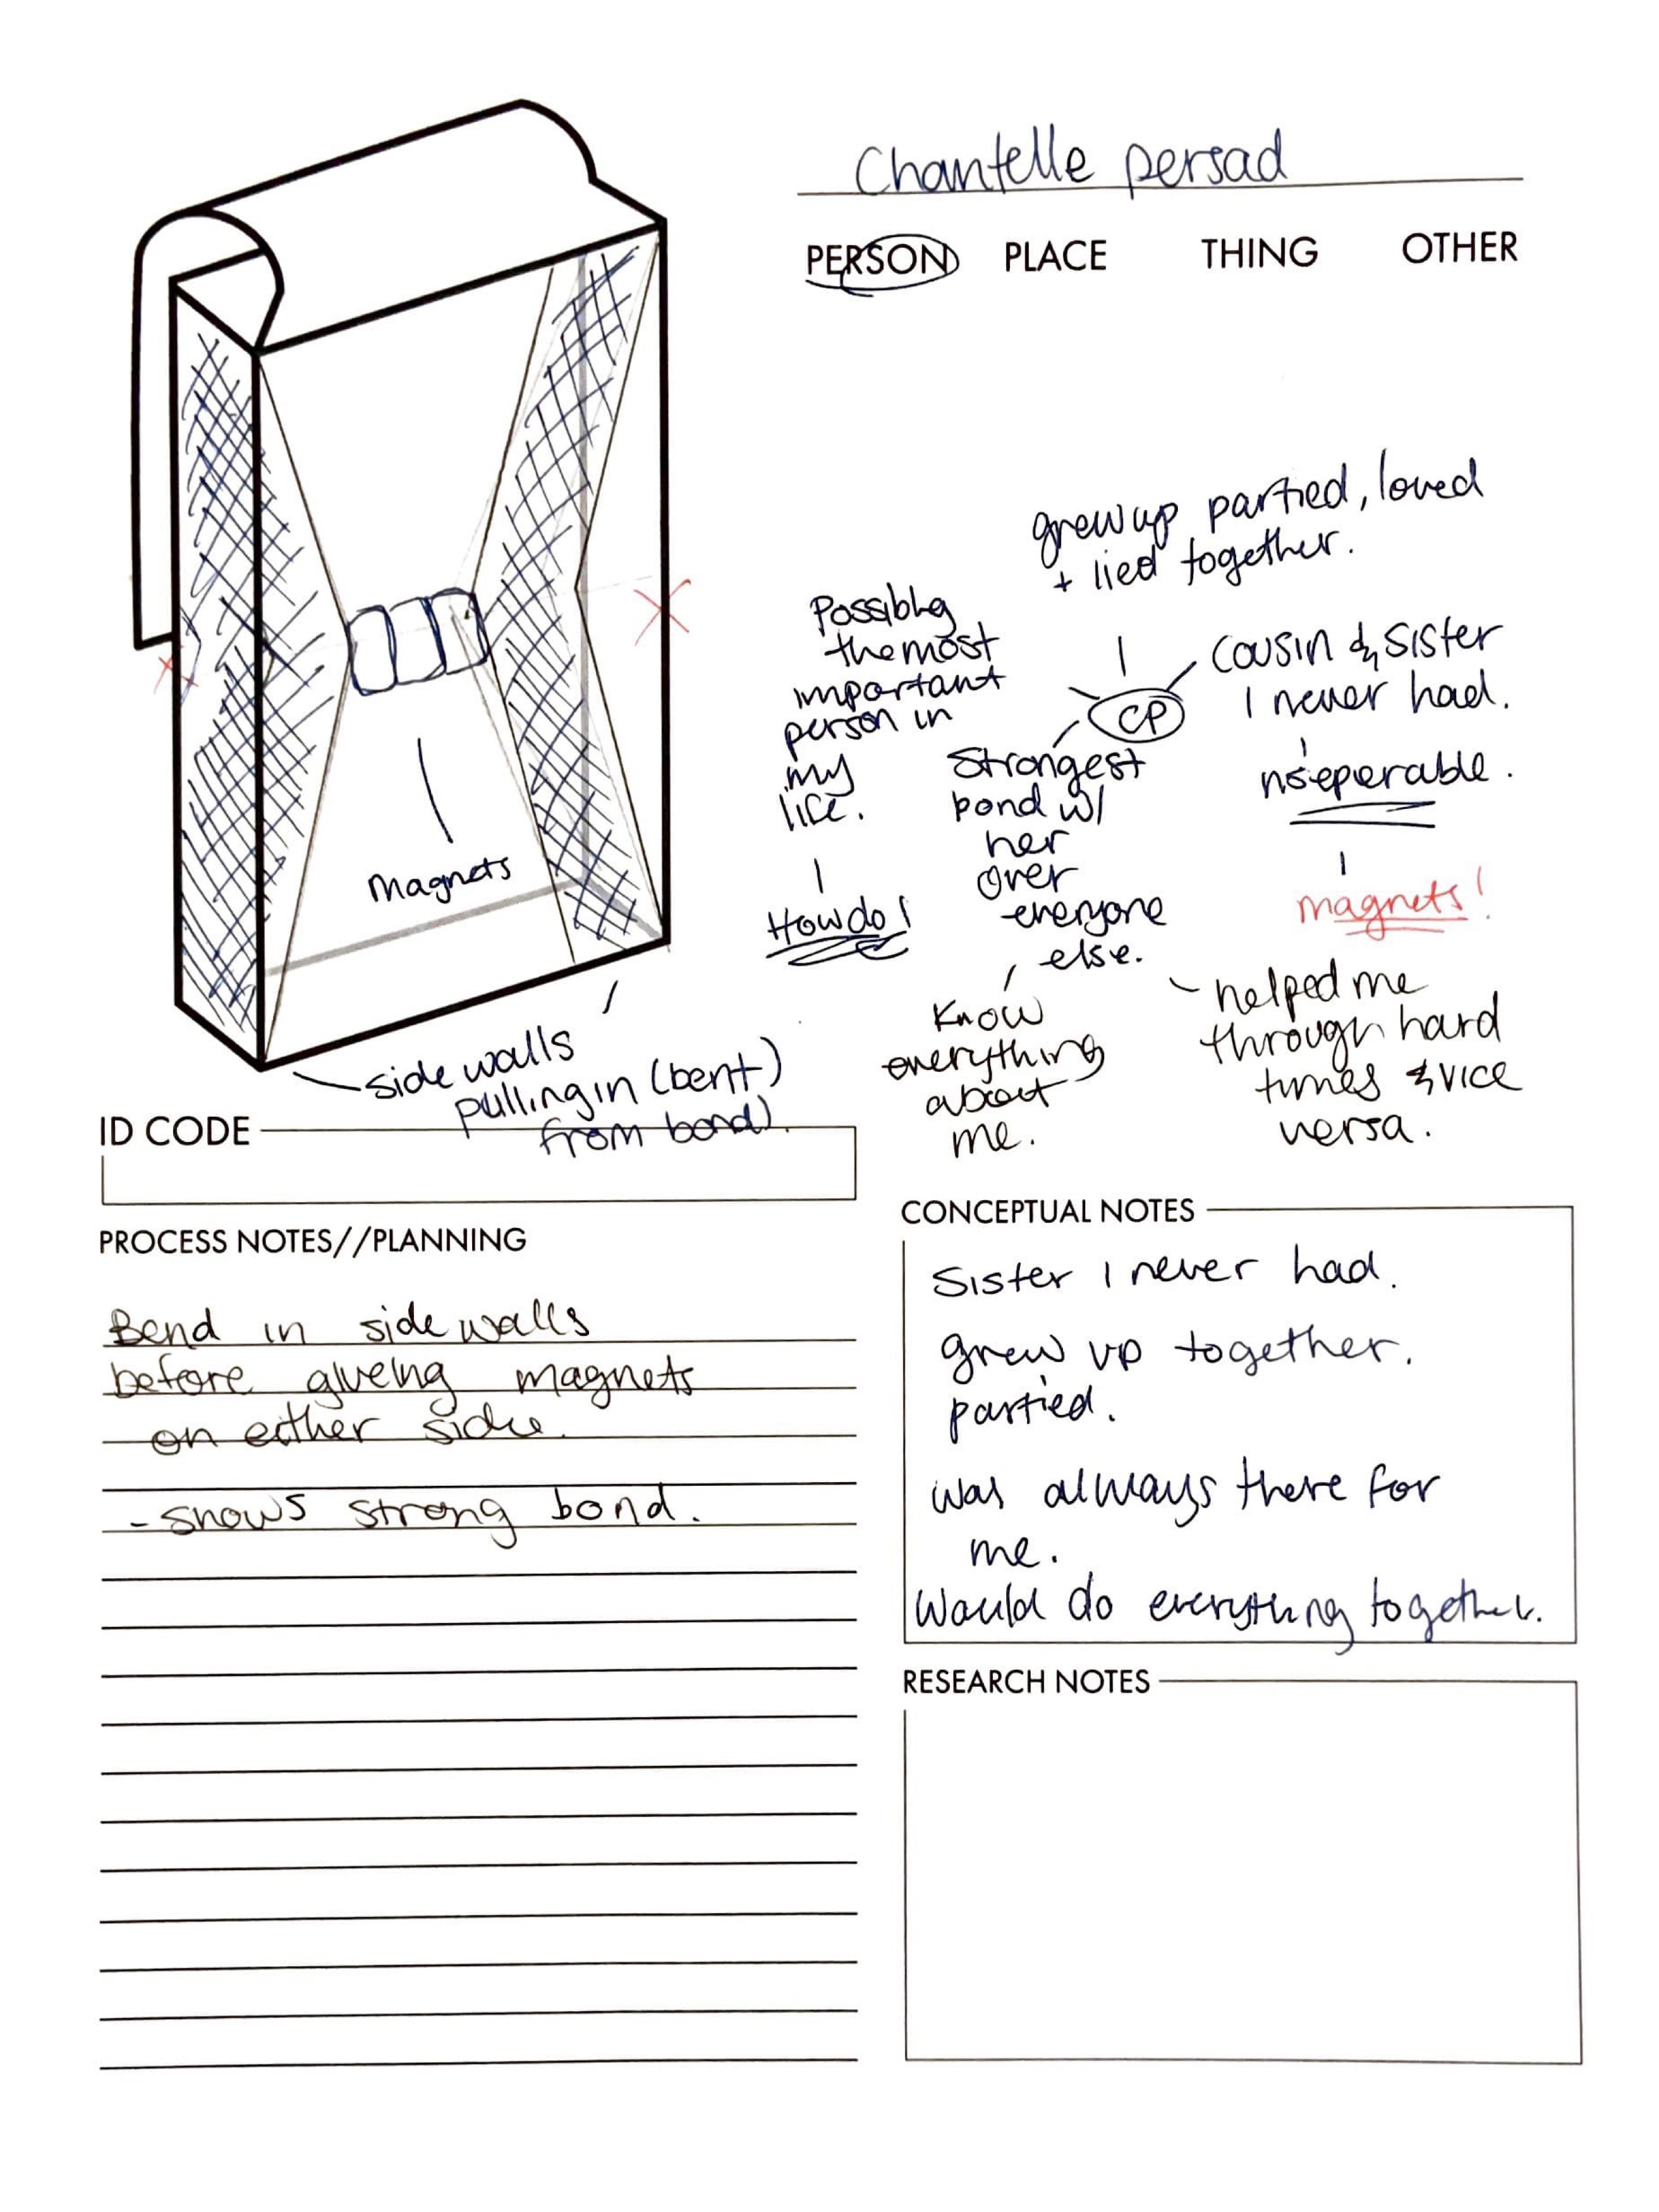 Chantelle persad
PERSON PLACE THING OTHER
grew up partied, loved
+ lied together.
Possibly
the most
important
person in
my
life.
How do I
CP
cousin & sister
I never had.
inseperable.
magnets!
Strongest
bond w/
her
over
everyone
else.
Know
everything
about
me.
helped me
through hard
times & vice
versa.
Magnets
side walls
pulling in (bent)
from bond).
ID CODE
PROCESS NOTES//PLANNING
Bend in side walls
before glueing magnets
on either side.
- shows strong bond.
CONCEPTUAL NOTES
Sister I never had.
grew up together.
partied.
was always there for
me.
Would do everything together.
RESEARCH NOTES